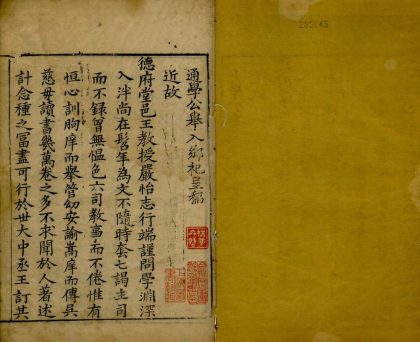 通學公舉入鄉祀呈稿
近故
德府堂邑王教授嚴怡志行端謹問學淵深
入泮尚在髫年為文不隨時套七謁主司
而不录曾無愠色六司教事而不倦惟有
恒心訓朐庠而舉管幼安諭蒿庠而傳吳
慈母讀書幾萬卷之多不求聞於人著述
計念種之富盡可行於世大中丞王訂其